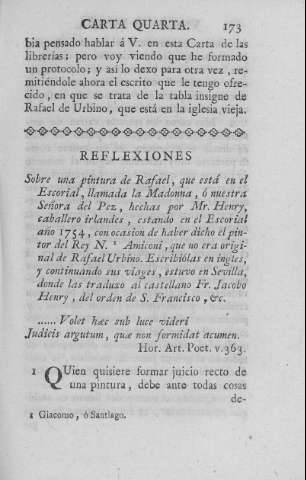 CARTA QUARTA. 173
bia pensado hablar á V. en esta Carta de las
librerías; pero voy viendo que he formado
un protocolo; y así lo dexo para otra vez, re-
mitiéndole ahora el escrito que le tengo ofre-
cido, en que se trata de la tabla insigne de
Rafael de Urbino, que está en la iglesia vieja.
REFLEXIONES
Sobre una pintura de Rafael, que está en el
Escorial, llamada la Madonna, ó nuestra
Señora del Pez, hechas por Mr. Henry,
caballero irlandes, estando en el Escorial
año 1754, con ocasion de haber dicho el pin-
tor del Rey N. 1 Amiconi, que no era origi-
nal de Rafael Urbino. Escribiólas en ingles,
y continuando sus viages, estuvo en Sevilla,
donde las traduxo al castellano Fr. Jacobo
Henry, del orden de S. Francisco, &c.
...... Volet hæc sub luce videri
Judicis argutum, quæ non formidat acumen.
Hor. Art. Poet. v.363.
1 QUien quisiere formar juicio recto de
una pintura, debe ante todas cosas
de-
1 Giacomo, ó Santiago.